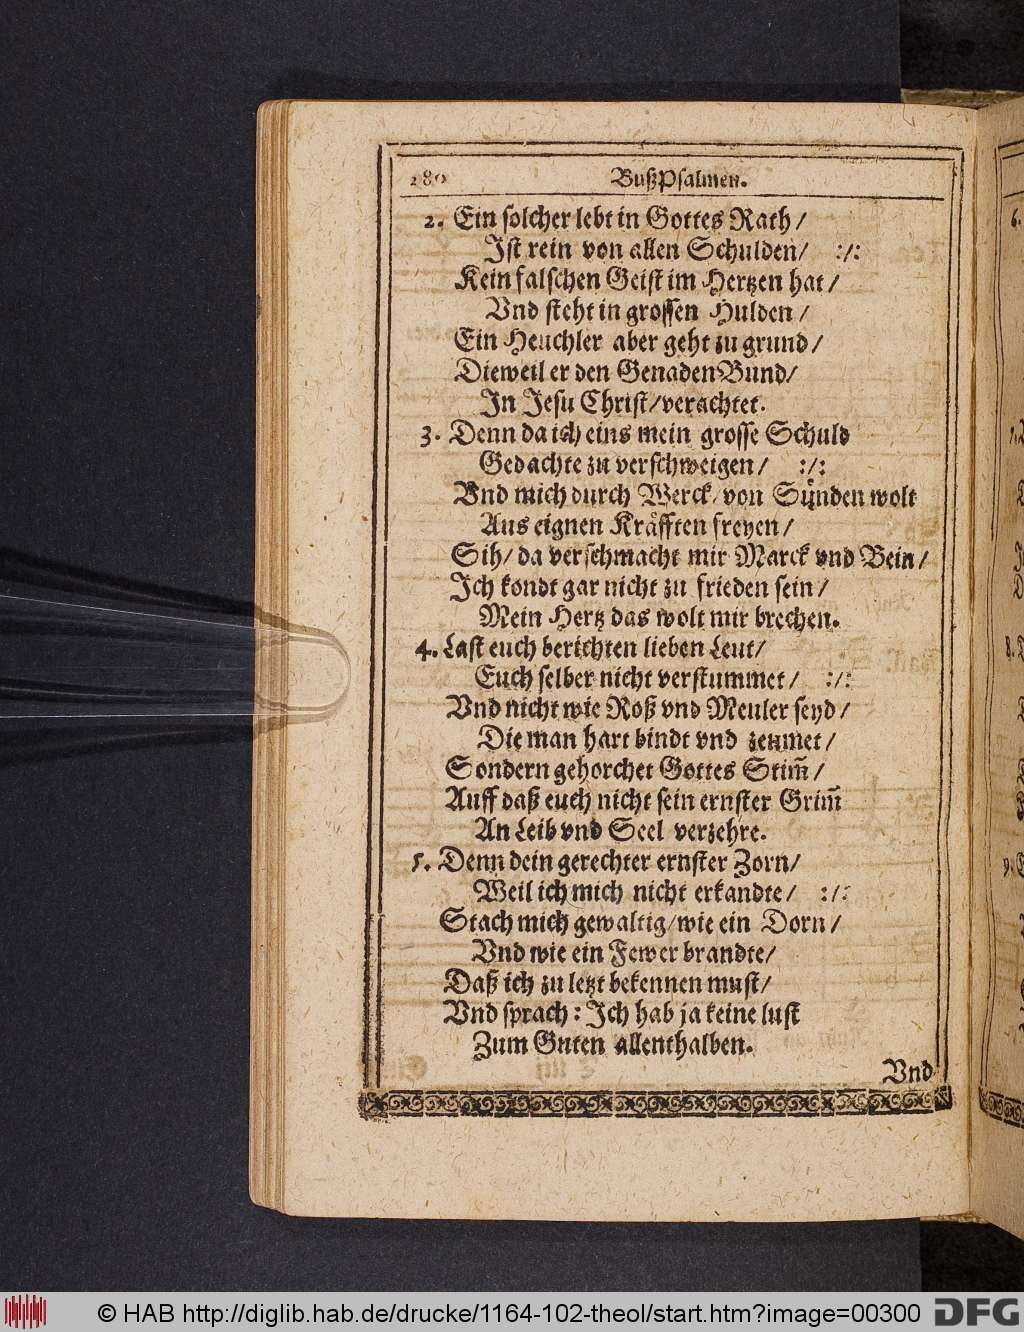 280 BußPsalmen.
2. Ein solcher lebt in Gottes Rath /
Ist rein von allen Schulden / :/:
Kein falschen Geist im Hertzen hat /
Vnd steht in grossen Hulden /
Ein Heuchler aber geht zu grund /
Dieweil er den GenadenBund /
In Jesu Christ / verachtet.
3. Denn da ich eins mein grosse Schuld
Gedachte zu verschweigen / :/:
Vnd mich durch Werck / von Sünden wolt
Aus eignen Kräfften freyen /
Sih / da verschmacht mir Marck vnd Bein /
Ich kondt gar nicht zu frieden sein /
Mein Hertz das wolt mir brechen.
4. Last euch berichten lieben Leut /
Euch selber nicht verstummet / :/:
Vnd nicht wie Roß vnd Meuler seyd /
Die man hart bindt vnd zeumet /
Sondern gehorchet Gottes Stim̃ /
Auff daß euch nicht sein ernster Grim̃
An Leib vnd Seel verzehre.
5. Denn dein gerechter ernster Zorn /
Weil ich mich nicht erkandte / :/:
Stach mich gewaltig / wie ein Dorn /
Vnd wie ein Fewer brandte /
Daß ich zu letzt bekennen must /
Vnd sprach : Ich hab ja keine lust
Zum Guten allenthalben.
Vnd
6.
8.
9.
© HAB http://diglib.hab.de/drucke/1164-102-theol/start.htm?image=00300 DFG